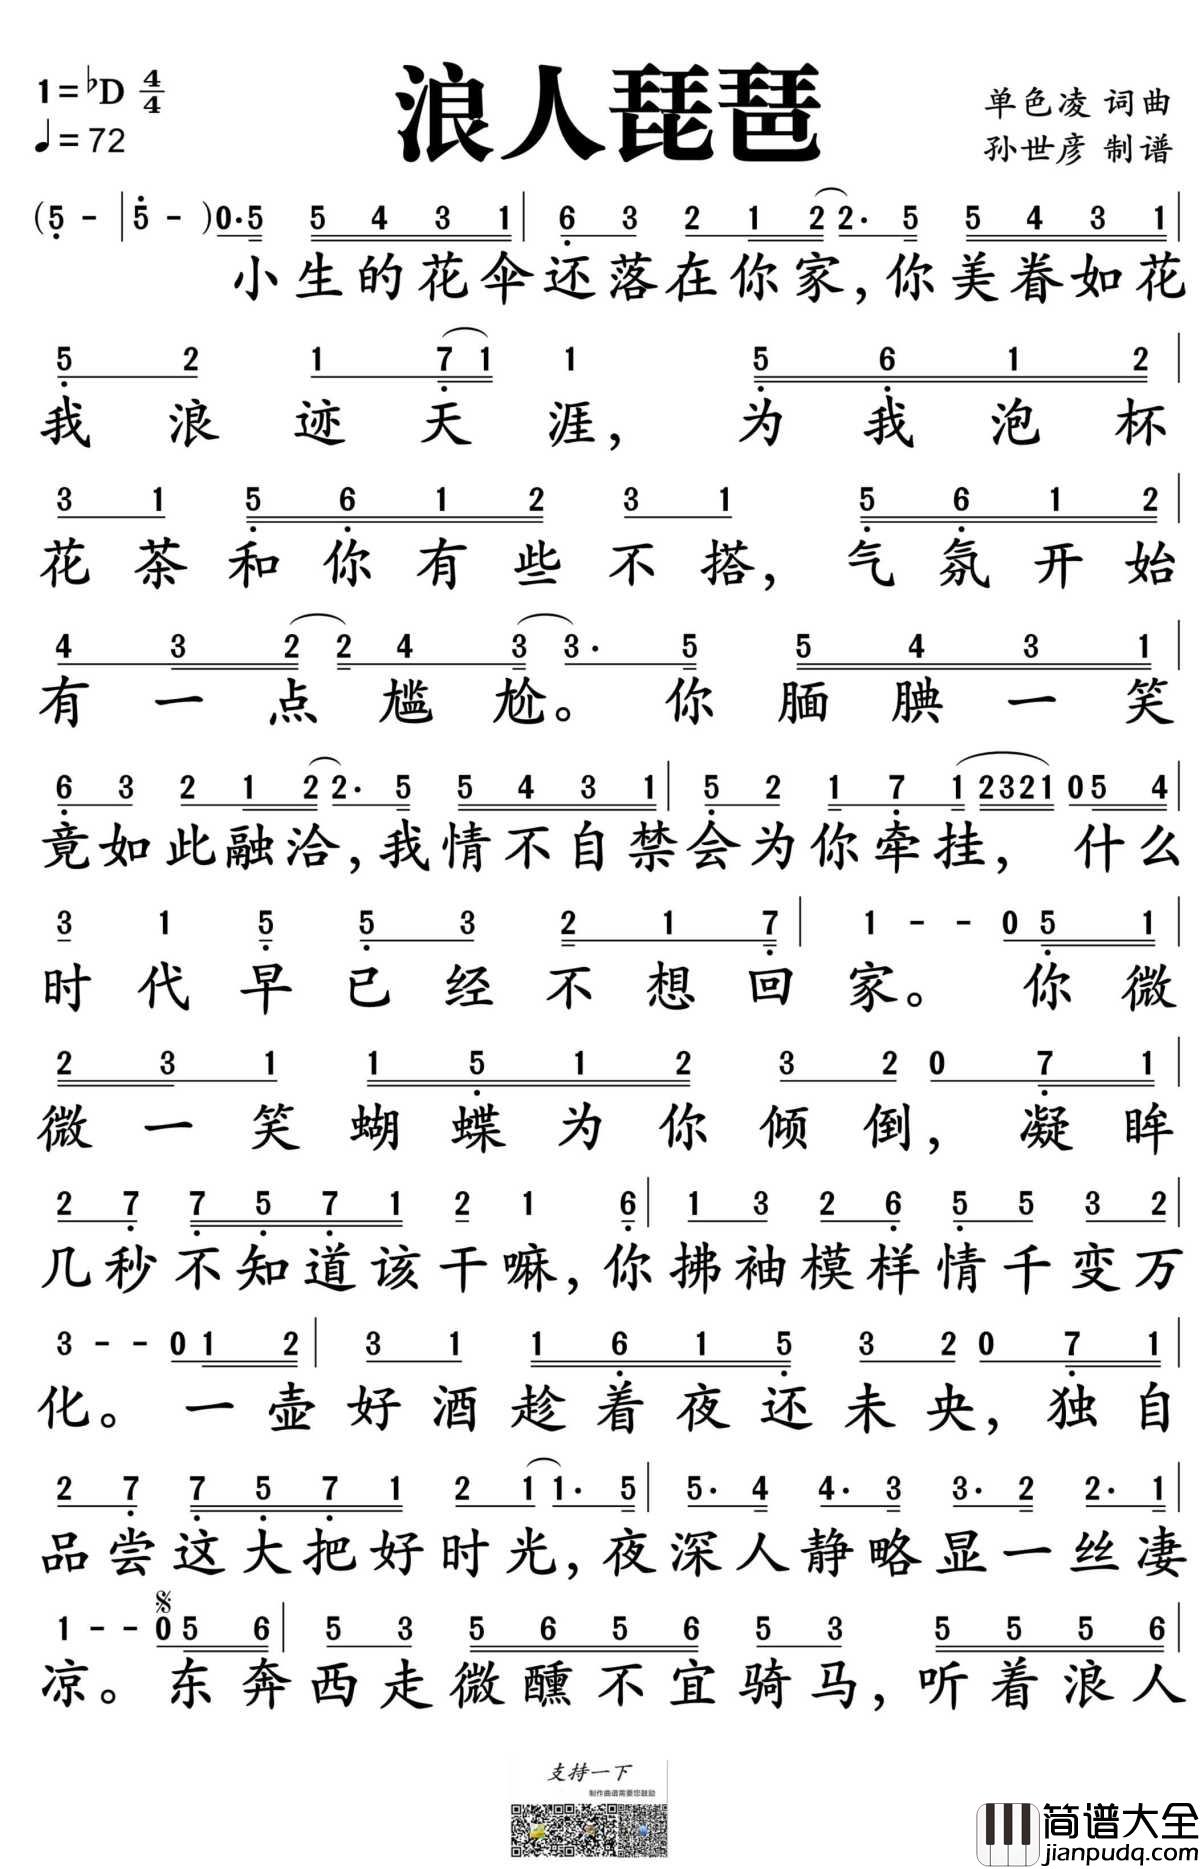 浪人琵琶
1=♭D 4/4
♩=72
单色凌 词曲
孙世彦 制谱
(5 - | 5 - ) 0·5 5 4 3 1 | 6 3 2 1 2 2· 5 5 4 3 1 |
小生的花伞还落在你家,你美眷如花
5 2 1 7 1 1 5 6 1 2 |
我浪迹天涯,为我泡杯
3 1 5 6 1 2 3 1 5 6 1 2 |
花茶和你有些不搭,气氛开始
4 3 2 2 4 3 3· 5 5 4 3 1 |
有一点尴尬。你腼腆一笑
6 3 2 1 2 2· 5 5 4 3 1 | 5 2 1 7 1 2321 0 5 4 |
竟如此融洽,我情不自禁会为你牵挂,什么
3 1 5 5 3 2 1 7 | 1 - - 0 5 1 |
时代早已经不想回家。你微
2 3 1 1 5 1 2 3 2 0 7 1 |
微一笑蝴蝶为你倾倒,凝眸
2 7 7 5 7 1 2 1 6 | 1 3 2 6 5 5 3 2 |
几秒不知道该干嘛,你拂袖模样情千变万
3 - - 0 1 2 | 3 1 1 6 1 5 3 2 0 7 1 |
化。一壶好酒趁着夜还未央,独自
2 7 7 5 7 1 2 1 1· 5 | 5· 4 4· 3 3· 2 2· 1 |
品尝这大把好时光,夜深人静略显一丝凄
1 - - 𝄋 0 5 6 | 5 3 5 6 5 6 5 3 5 5 5 6 |
凉。东奔西走微醺不宜骑马,听着浪人
支持一下
制作曲谱需要您鼓励
简谱大全
jianpudq.com